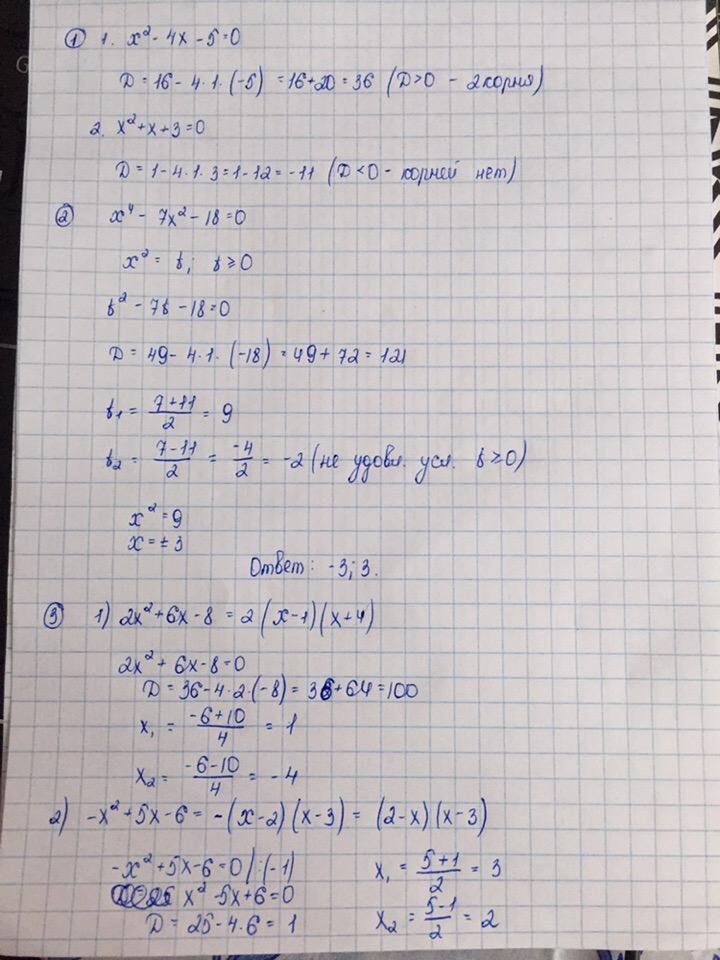 ① 1. x² - 4x - 5 = 0
D = 16 - 4·1·(-5) = 16+20 = 36 (D>0 - 2 корня)
2. x² + x + 3 = 0
D = 1 - 4·1·3 = 1 - 12 = -11 (D<0 - корней нет)
② x⁴ - 7x² - 18 = 0
x² = t; t ≥ 0
t² - 7t - 18 = 0
D = 49 - 4·1·(-18) = 49 + 72 = 121
t₁ = (7+11)/2 = 9
t₂ = (7-11)/2 = -4/2 = -2 (не удовл. усл. t ≥ 0)
x² = 9
x = ±3
Ответ: -3; 3.
③ 1) 2x² + 6x - 8 = 2(x-1)(x+4)
2x² + 6x - 8 = 0
D = 36 - 4·2·(-8) = 36 + 64 = 100
x₁ = (-6+10)/4 = 1
x₂ = (-6-10)/4 = -4
2) -x² + 5x - 6 = -(x-2)(x-3) = (2-x)(x-3)
-x² + 5x - 6 = 0 |:(-1)
x² - 5x + 6 = 0
D = 25 - 4·6 = 1
x₁ = (5+1)/2 = 3
x₂ = (5-1)/2 = 2